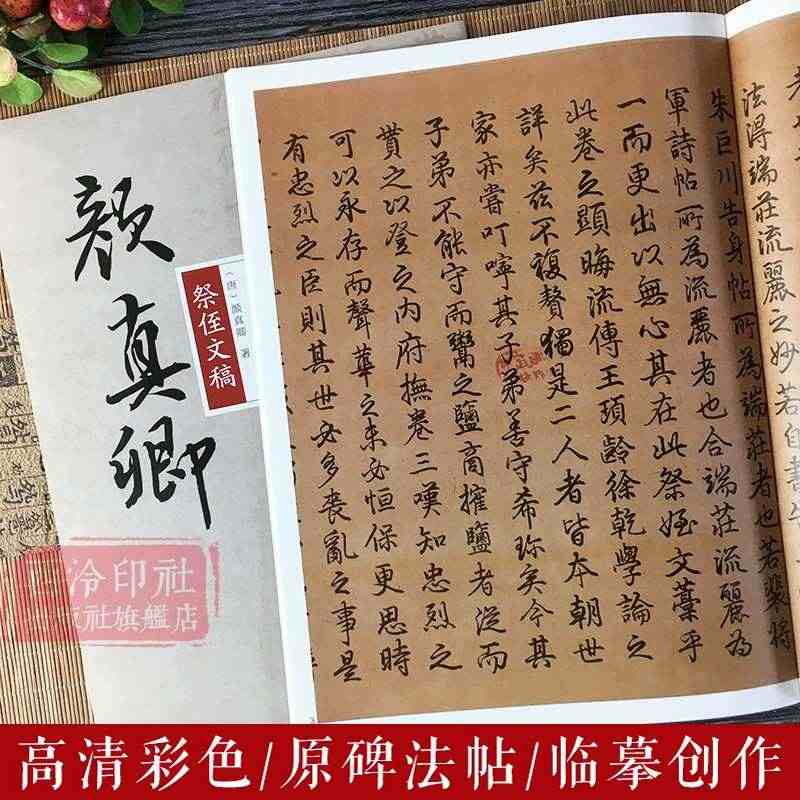 顔真卿
祭侄文稿
(唐)颜真卿 著
法得端莊流麗之妙若自書
朱巨川告身帖所為端莊者也若裴將
軍詩帖所為流麗者也合端莊流麗為
一而更出以無心其在此祭姪文藁乎
此卷之顯晦流傳王頊齡徐乾學論之
詳矣茲不複贅獨是二人者皆本朝世
家亦嘗叮嚀其子弟善守希珍矣今其
子弟不能守而鬻之鹽商搉鹽者從而
貰之以登之內府撫卷三嘆知忠烈之
可以永存而聲華之未必恒保更思時
有忠烈之臣則其世必多喪亂之事是
西泠印社
出版社旗艦店
高清彩色/原碑法帖/临摹创作